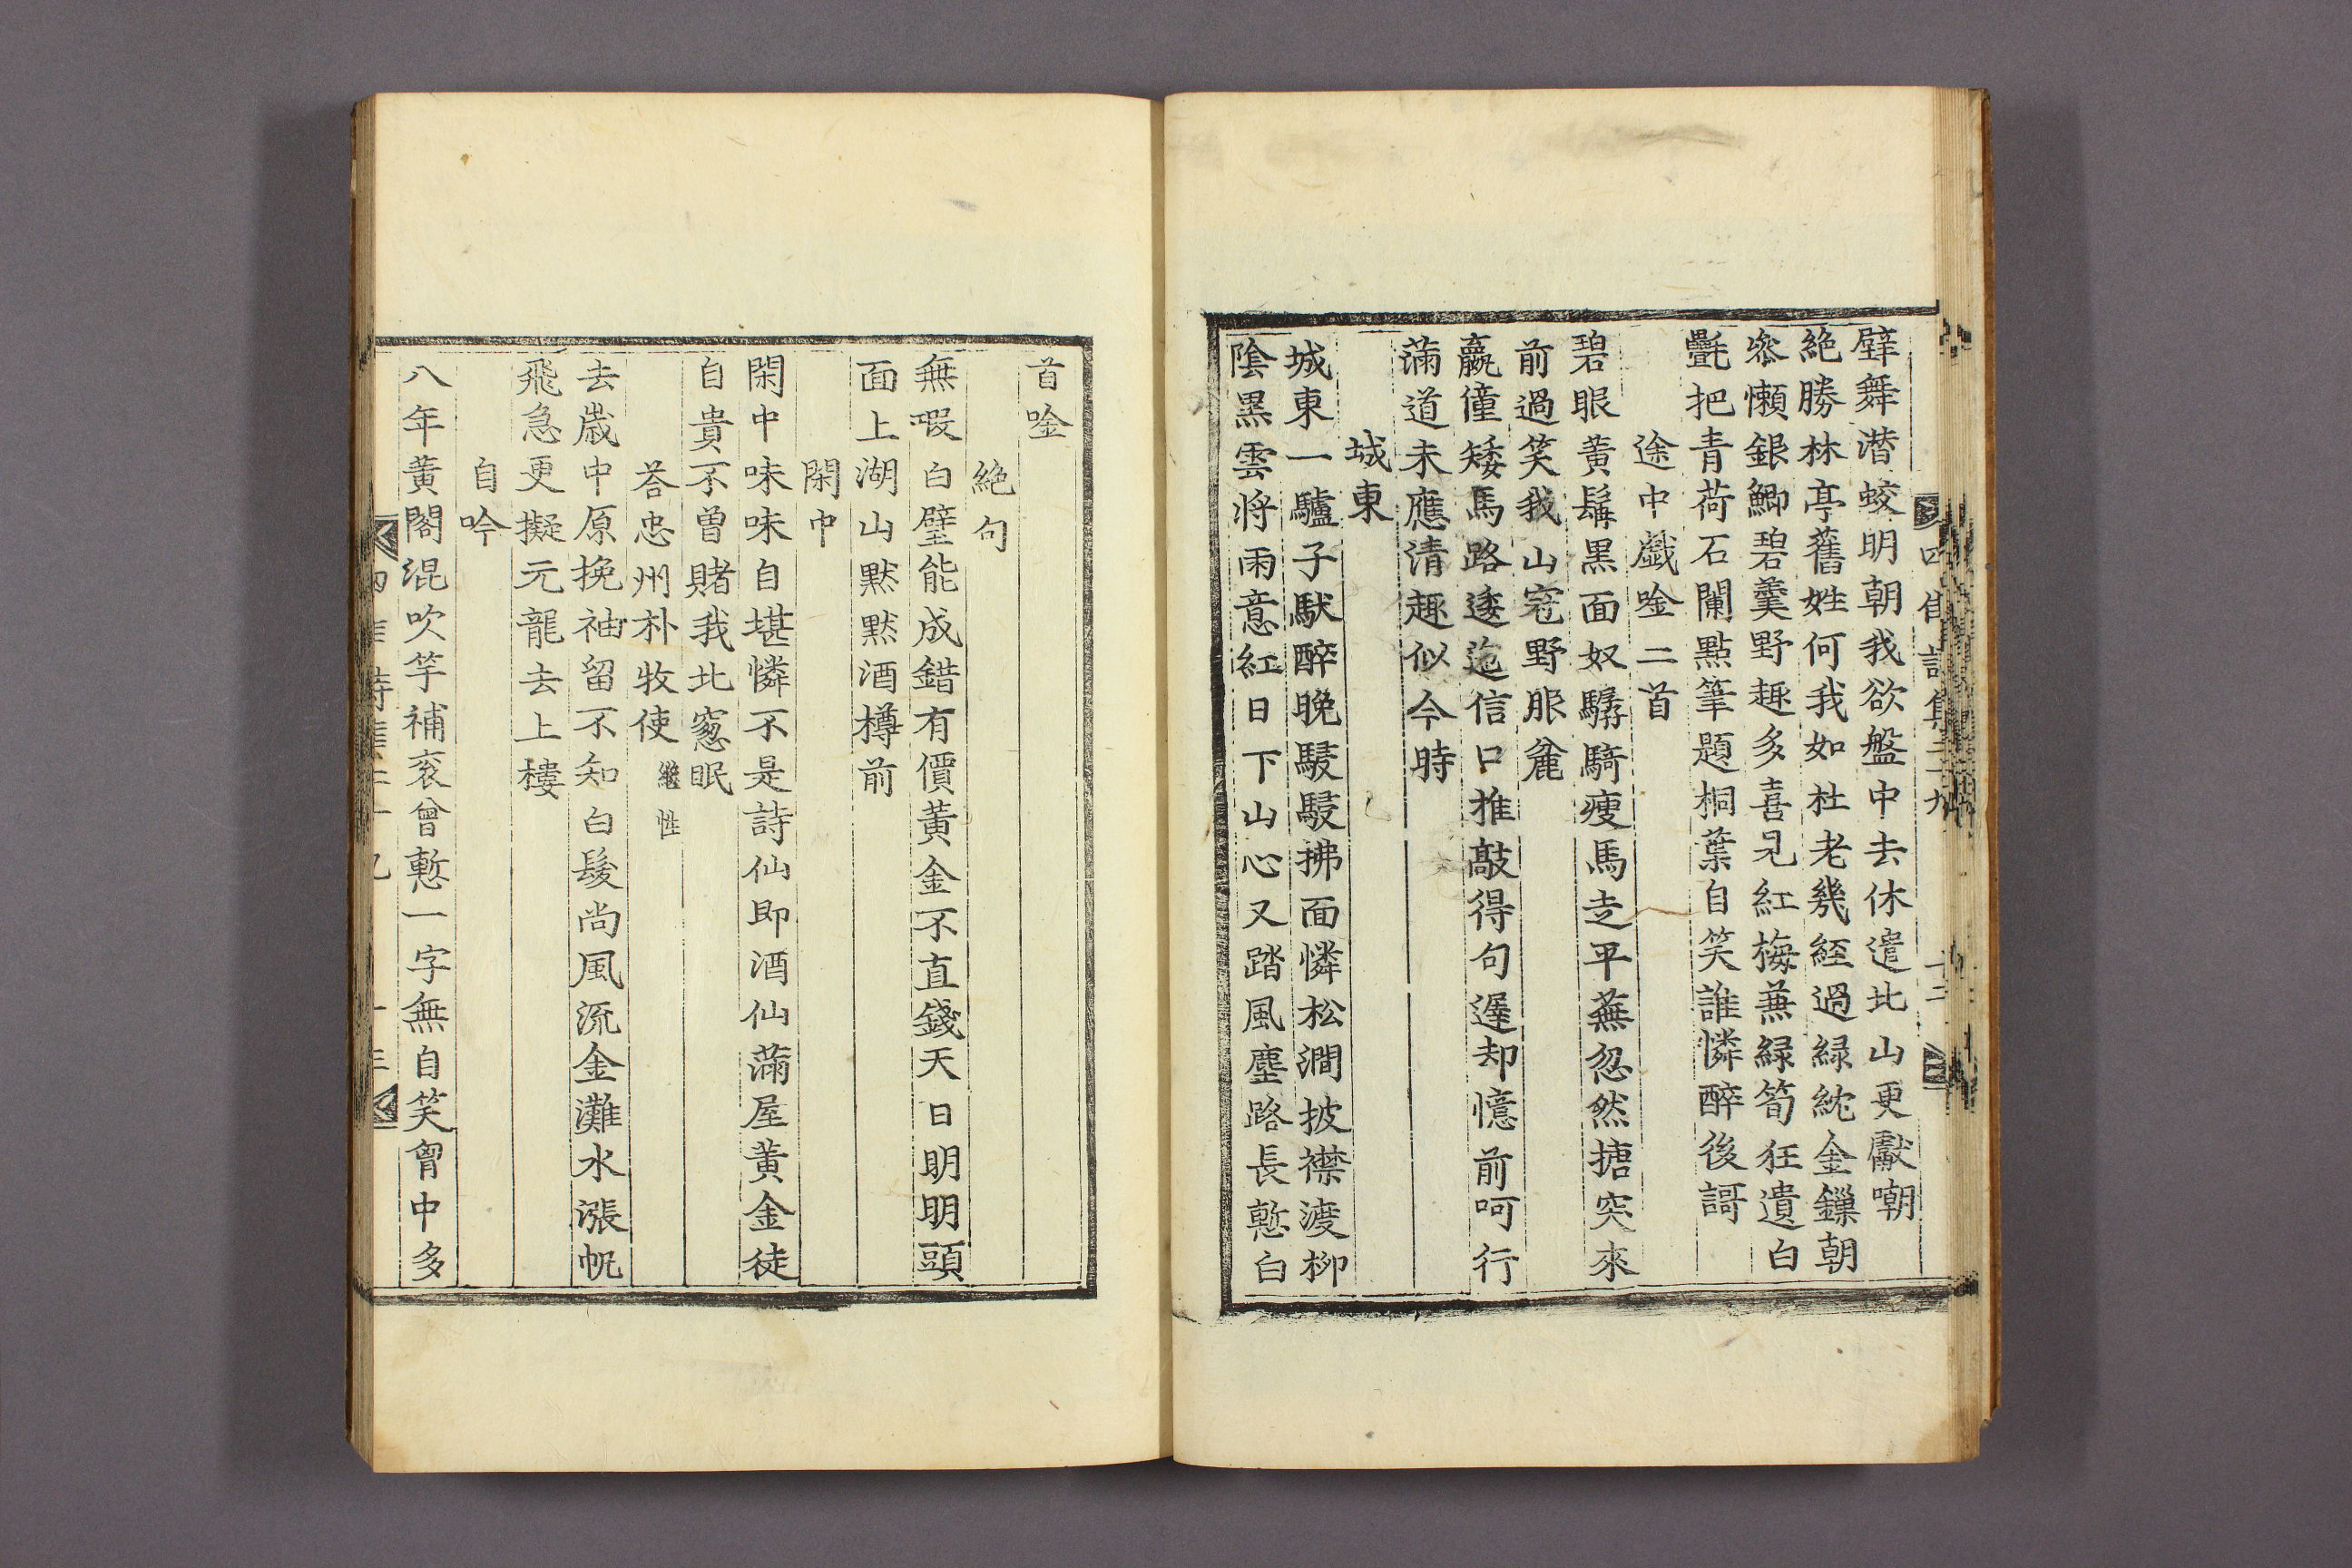 四佳詩集二九 十二
壁舞潛蛟明朝我欲盤中去休遣北山更獻嘲
絶勝林亭舊姓何我如杜老幾經過緑紞金鏁朝
叅懶銀鯽碧羹野趣多喜見紅梅蕪緑筍狂遺白
氎把青荷石闌點筆題桐葉自笑誰憐醉後謌
途中戲唫二首
碧眼黃鬚黑面奴驏騎瘦馬走平蕪忽然搪突來
前過笑我山冠野服麁
羸僮矮馬路逶迤信口推敲得句遲却憶前呵行
滿道未應清趣似今時
城東
城東一驢子䭾醉晚駸駸拂面憐松澗披襟渡柳
陰黑雲將雨意紅日下山心又踏風塵路長慙白
首唫
絶句
無瑕白璧能成錯有價黃金不直錢天日明明頭
面上湖山默默酒樽前
閑中
閑中味味自堪憐不是詩仙即酒仙滿屋黃金徒
自貴不曾賭我北窓眠
荅忠州朴牧使 繼性
去歲中原挽袖留不知白髮尚風流金灘水漲帆
飛急更擬元龍去上樓
自吟
八年黃閣混吹竽補衮曾慙一字無自笑胷中多